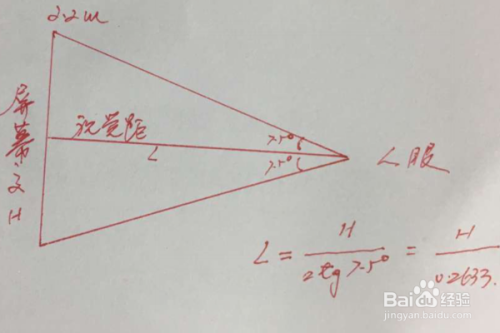 2.2m
屏幕高H
视觉距
L
7.5°
7.5°
人眼
L = H / 2tg7.5° = H / 0.2633.
Baidu经验
jingyan.baidu.com